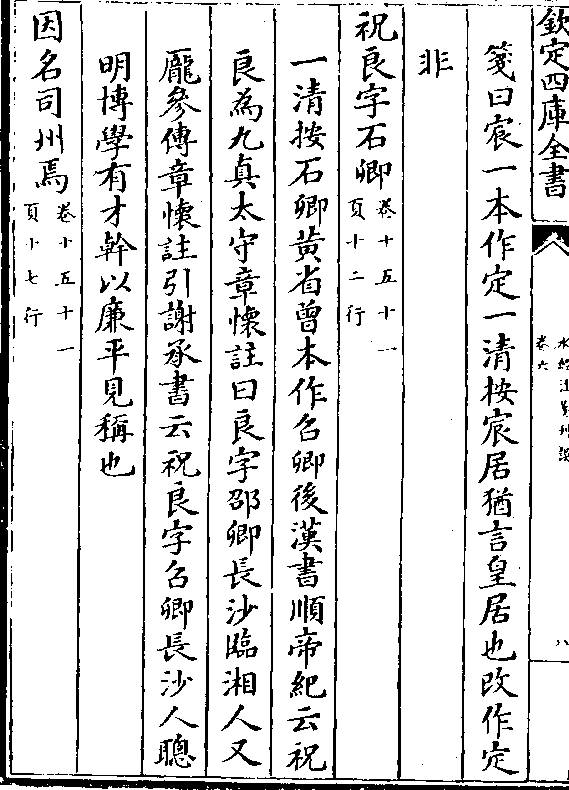 欽定四庫全書
水經注箋刊誤
卷六
八
箋曰宸一本作定一清按宸居猶言皇居也改作定
非
祝良字石卿卷十五十一
頁十二行
一清按石卿黄省曾本作召卿後漢書順帝紀云祝
良為九真太守章懷註曰良字邵卿長沙臨湘人又
龐參傳章懷註引謝承書云祝良字召卿長沙人聰
明博學有才幹以廉平見稱也
因名司州焉卷十五十一
頁十七行